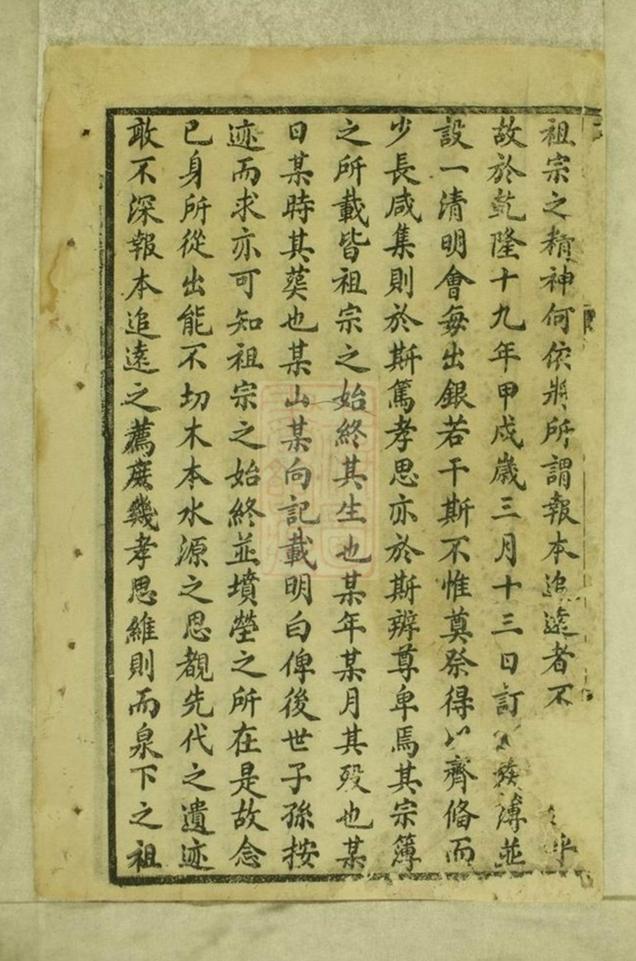 祖宗之精神何依將所謂報本追遠者不乎
故於乾隆十九年甲戍歲三月十三日訂族溥並
設一清明會每出銀若干斯不惟奠祭得以齊俻而
少長咸集則於斯篤孝思亦於斯辨尊卑焉其宗簿
之所載皆祖宗之始終其生也某年某月其殁也某
日某時其葬也某山某向記載明白俾後世子孫按
迹而求亦可知祖宗之始終並墳塋之所在是故念
已身所從出能不切木本水源之思覩先代之遺迹
敢不深報本追遠之薦庶幾孝思維則而泉下之祖